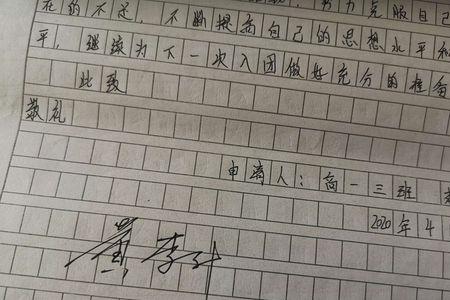 在的不足，不断提高自己的思想水平和
平，继续为下一次入团做好充分的准备
此致
敬礼
申请人：高一三班
2020年4
李